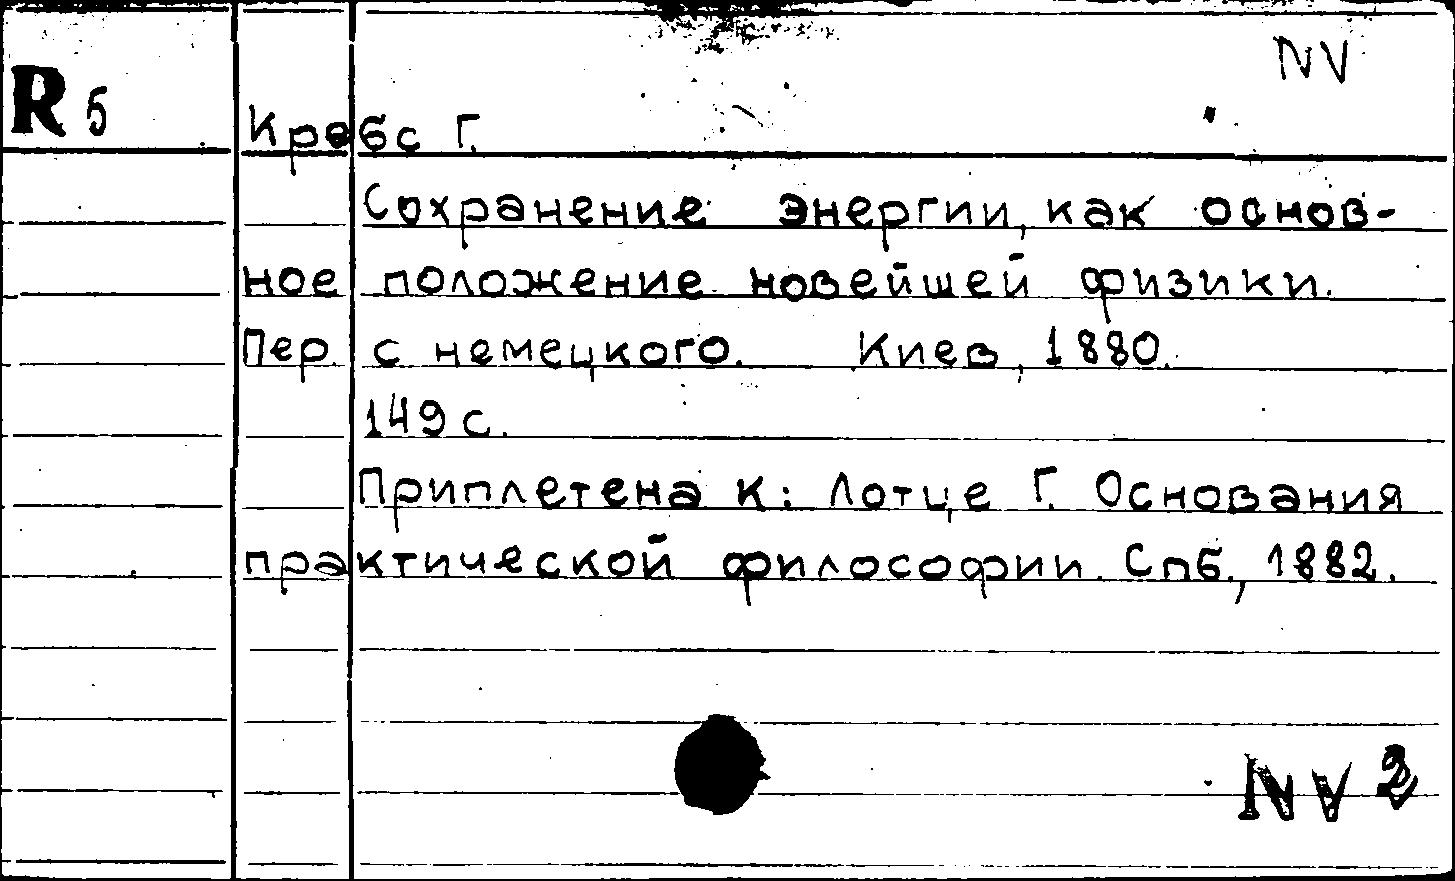 NV
R 5
Кребс Г.
Сохранение энергии, как основ-
ное положение новейшей физики.
Пер. с немецкого. Киев, 1880.
149 с.
Приплетена к: Лотце Г. Основания
практической философии. Спб., 1882.
NV 2